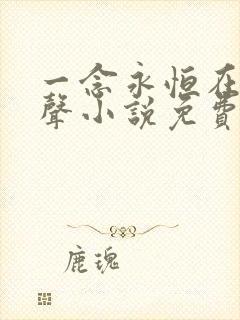 一念永恒在
聲小説免費
鹿瑰